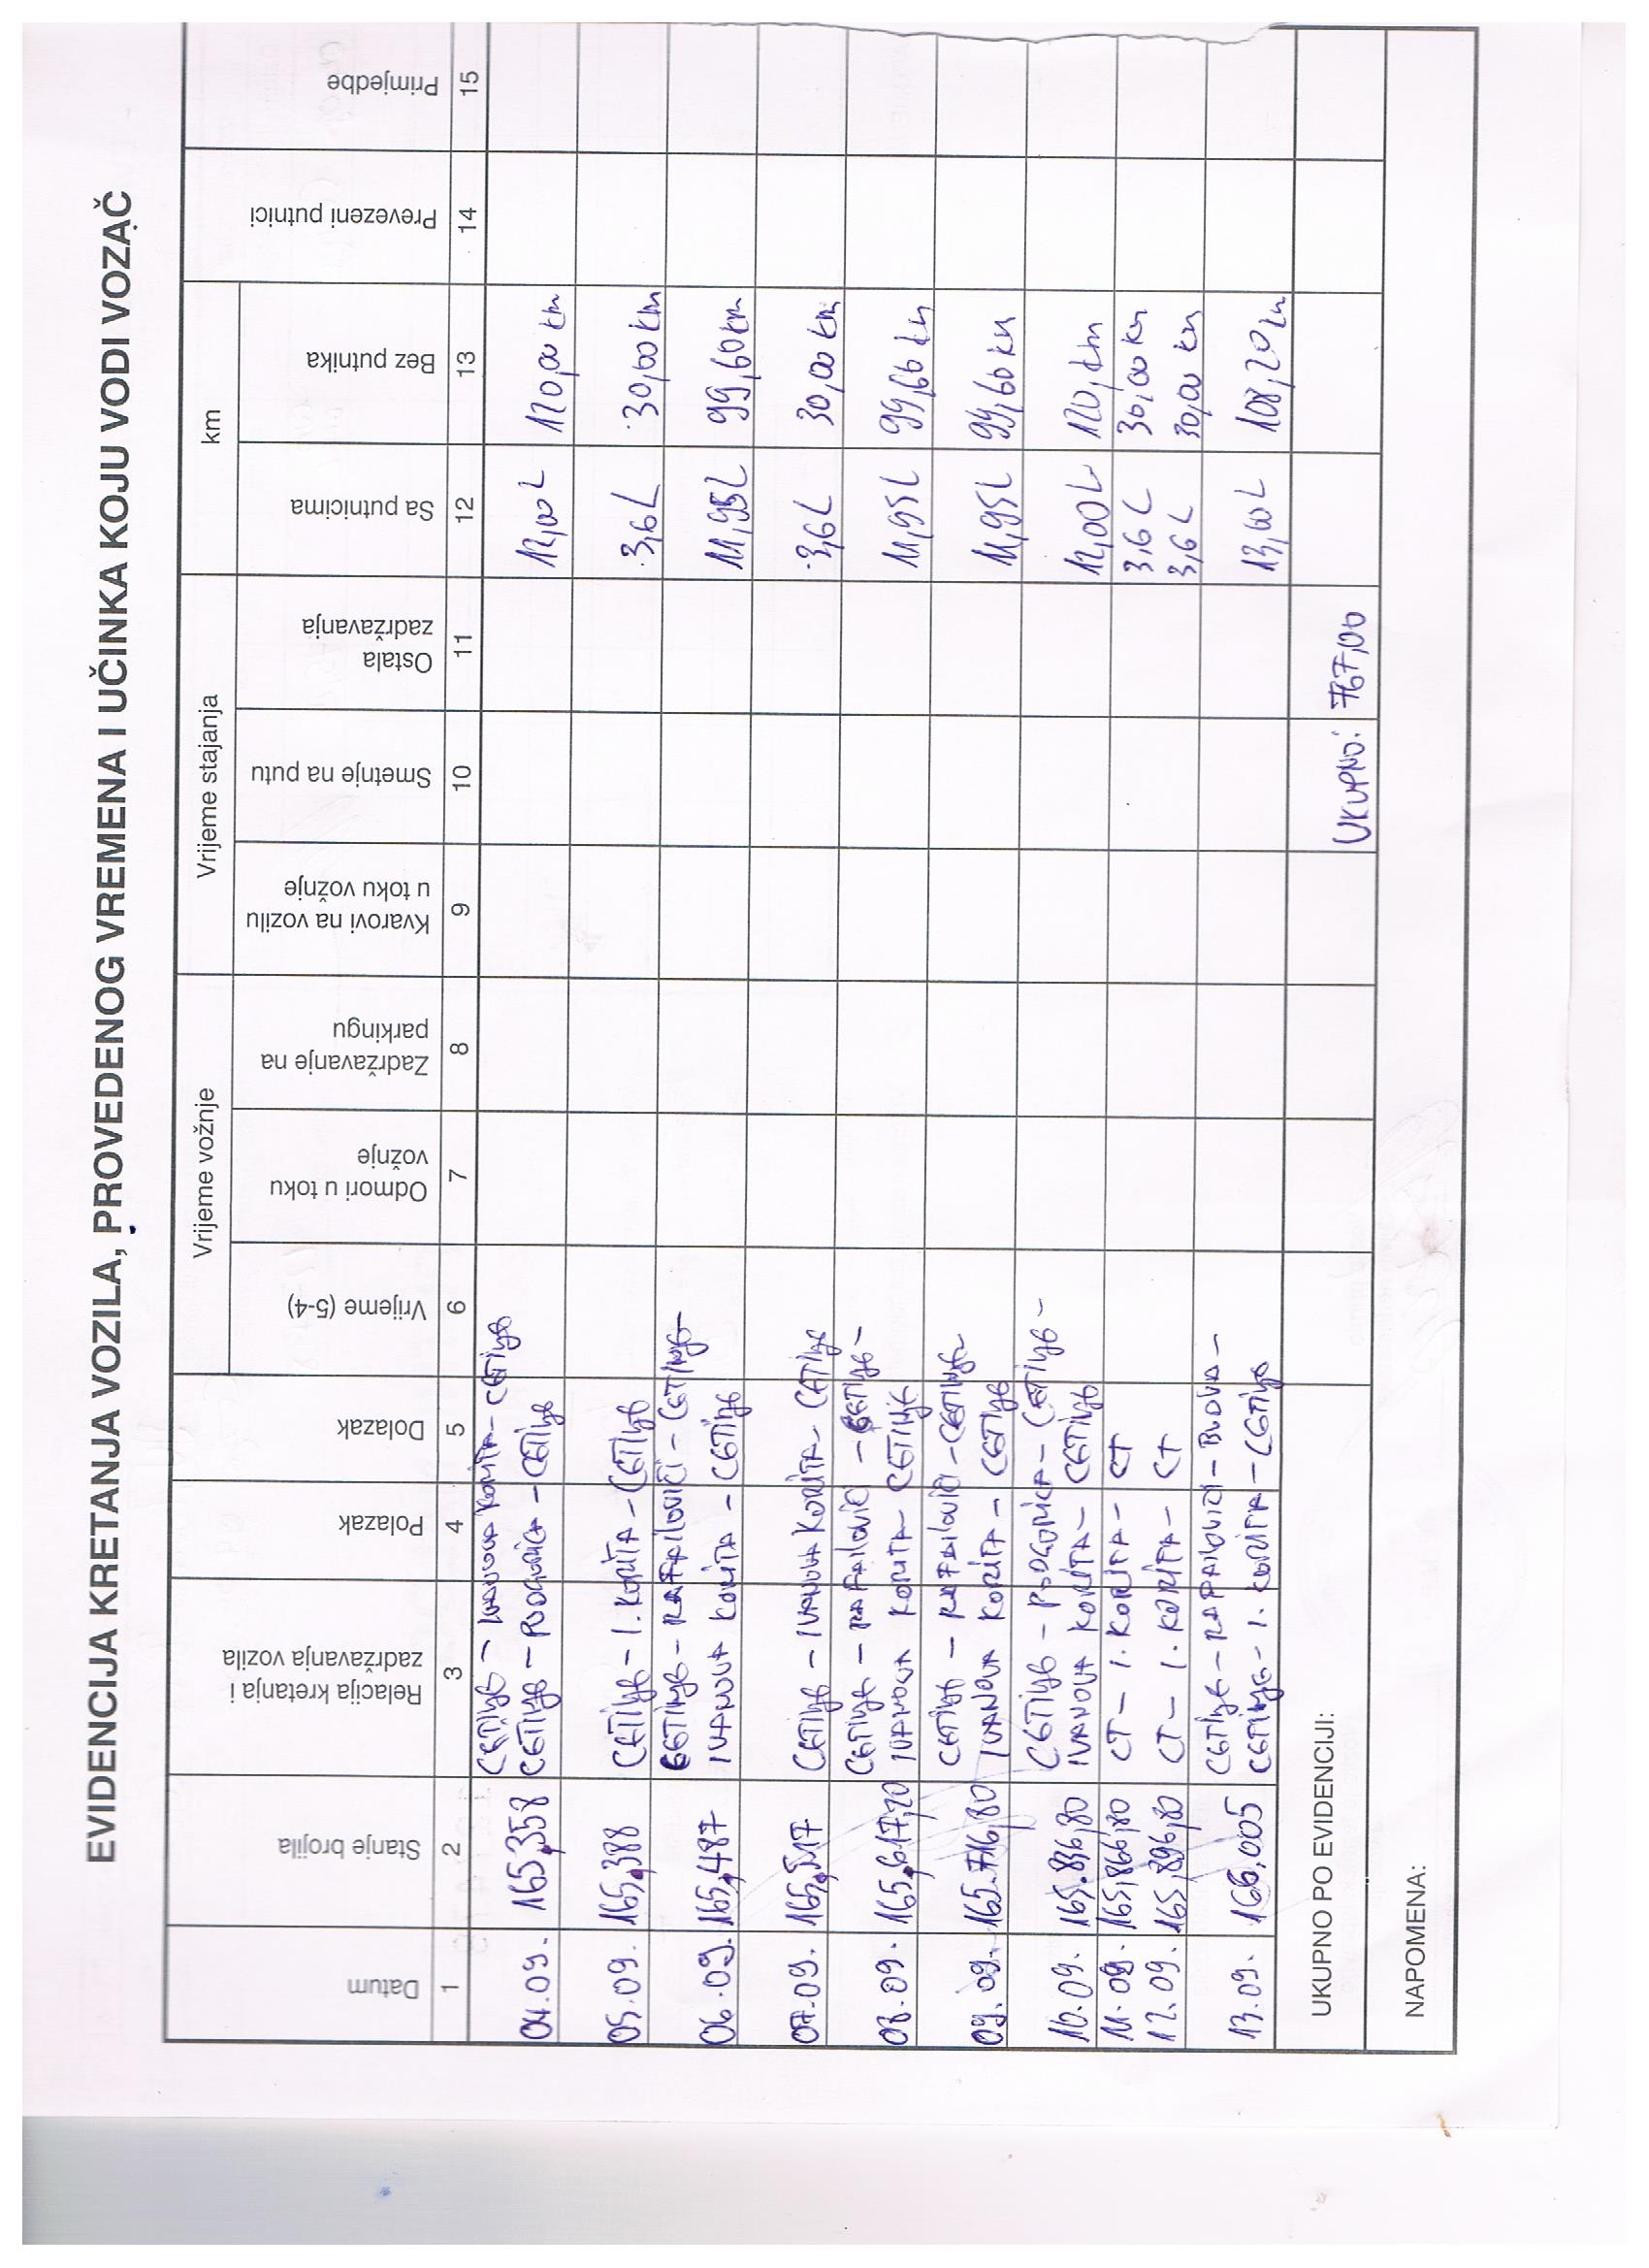 EVIDENCIJA KRETANJA VOZILA, PROVEDENOG VREMENA I UČINKA KOJU VODI VOZAČ
Vrijeme vožnje Vrijeme stajanja km
Datum Stanje brojila Relacija kretanja i zadržavanja vozila Polazak Dolazak Vrijeme (5-4) Odmori u toku vožnje Zadržavanje na parkingu Kvarovi na vozilu u toku vožnje Smetnje na putu Ostala zadržavanja Sa putnicima Bez putnika Prevezeni putnici Primjedbe
1 2 3 4 5 6 7 8 9 10 11 12 13 14 15
CETINJE – IVANOVA KORITA – CETINJE
04.09. 165,358 CETINJE – PODGORICA – CETINJE 12,00 L 120,00 km
05.09. 165,388 CETINJE – I. KORITA – CETINJE 3,6 L 30,00 km
CETINJE – RAFAILOVIĆI – CETINJE –
06.09. 165,487 IVANOVA KORITA – CETINJE 11,95 L 99,60 km
07.09. 165,517 CETINJE – IVANOVA KORITA – CETINJE 3,6 L 30,00 km
CETINJE – RAFAILOVIĆI – CETINJE –
08.09. 165,617,20 IVANOVA KORITA – CETINJE 11,95 L 99,60 km
CETINJE – RAFAILOVIĆI – CETINJE –
09.09. 165.716,80 IVANOVA KORITA – CETINJE 11,95 L 99,60 km
CETINJE – PODGORICA – CETINJE –
10.09. 165.836,80 IVANOVA KORITA – CETINJE 12,00 L 120, km
11.09. 165,866,80 CT – I. KORITA – CT 3,6 L 30,00 km
12.09. 165,896,80 CT – I. KORITA – CT 3,6 L 30,00 km
CETINJE – RAFAILOVIĆI – BUDVA –
13.09. 166.005 CETINJE – I. KORITA – CETINJE 13,00 L 108,20 km
UKUPNO PO EVIDENCIJI: UKUPNO: 767,00
NAPOMENA: